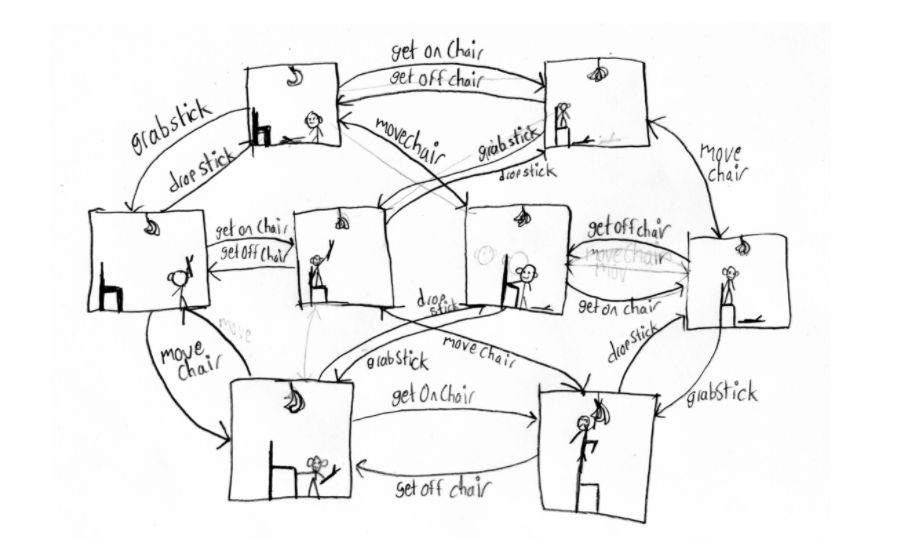 get on Chair
get off chair
grabstick
dropstick
movechair
grabstick
dropstick
move
chair
get on Chair
get off Chair
get off chair
movechair
mov
get on chair
move
Chair
move
drop
stick
grabstick
move chair
dropstick
grabstick
get On Chair
get off chair